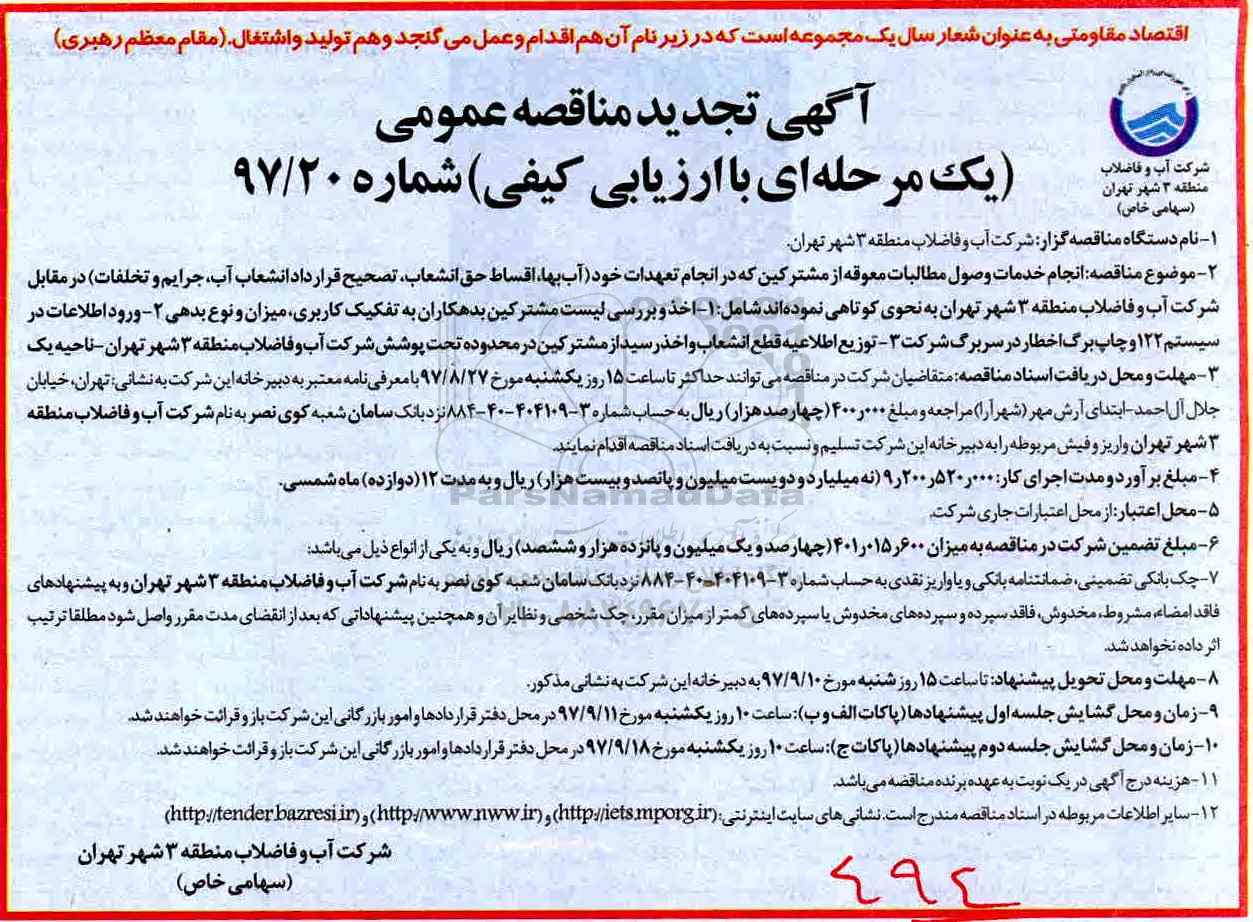 اقتصاد مقاومتی به عنوان شعار سال یک مجموعه است که در زیر نام آن هم اقدام و عمل می گنجد و هم تولید و اشتغال. (مقام معظم رهبری)
آگهی تجدید مناقصه عمومی
(یک مرحله‌ای با ارزیابی کیفی) شماره ۹۷/۲۰
شرکت آب و فاضلاب
منطقه ۳ شهر تهران
(سهامی خاص)
۱-نام دستگاه مناقصه گزار: شرکت آب و فاضلاب منطقه ۳ شهر تهران.
۲-موضوع مناقصه: انجام خدمات وصول مطالبات معوقه از مشترکین که در انجام تعهدات خود (آب بها، اقساط حق انشعاب، تصحیح قرارداد انشعاب آب، جرایم و تخلفات) در مقابل
شرکت آب و فاضلاب منطقه ۳ شهر تهران به نحوی کوتاهی نموده‌اند شامل: ۱-اخذ و بررسی لیست مشترکین بدهکاران به تفکیک کاربری، میزان و نوع بدهی ۲-ورود اطلاعات در
سیستم ۱۲۲ و چاپ برگ اخطار در سربرگ شرکت ۳-توزیع اطلاعیه قطع انشعاب و اخذ رسید از مشترکین در محدوده تحت پوشش شرکت آب و فاضلاب منطقه ۳ شهر تهران-ناحیه یک
۳-مهلت و محل دریافت اسناد مناقصه: متقاضیان شرکت در مناقصه می توانند حداکثر تا ساعت ۱۵ روز یکشنبه مورخ ۹۷/۸/۲۷ با معرفی نامه معتبر به دبیرخانه این شرکت به نشانی: تهران، خیابان
جلال آل احمد-ابتدای آرش مهر (شهرآرا) مراجعه و مبلغ ۴۰۰ر۰۰۰ (چهارصد هزار) ریال به حساب شماره ۳-۴۰۴۱۰۹-۴۰-۸۸۴ نزد بانک سامان شعبه کوی نصر به نام شرکت آب و فاضلاب منطقه
۳ شهر تهران واریز و فیش مربوطه را به دبیرخانه این شرکت تسلیم و نسبت به دریافت اسناد مناقصه اقدام نمایند.
۴-مبلغ برآورد و مدت اجرای کار: ۹ر۲۰۰ر۵۲۰ر۰۰۰ (نه میلیارد و دویست میلیون و پانصد و بیست هزار) ریال و به مدت ۱۲ (دوازده) ماه شمسی.
ParsNamadData
۵-محل اعتبار: از محل اعتبارات جاری شرکت.
۶-مبلغ تضمین شرکت در مناقصه به میزان ۴۰۱ر۰۱۵ر۶۰۰ (چهارصد و یک میلیون و پانزده هزار و ششصد) ریال و به یکی از انواع ذیل می باشد:
۷-چک بانکی تضمینی، ضمانتنامه بانکی و یا واریز نقدی به حساب شماره ۳-۴۰۴۱۰۹-۴۰-۸۸۴ نزد بانک سامان شعبه کوی نصر به نام شرکت آب و فاضلاب منطقه ۳ شهر تهران و به پیشنهادهای
فاقد امضاء، مشروط، مخدوش، فاقد سپرده و سپرده‌های مخدوش یا سپرده‌های کمتر از میزان مقرر، چک شخصی و نظایر آن و همچنین پیشنهاداتی که بعد از انقضای مدت مقرر واصل شود مطلقا ترتیب
اثر داده نخواهد شد.
۸-مهلت و محل تحویل پیشنهاد: تا ساعت ۱۵ روز شنبه مورخ ۹۷/۹/۱۰ به دبیرخانه این شرکت به نشانی مذکور.
۹-زمان و محل گشایش جلسه اول پیشنهادها (پاکات الف و ب): ساعت ۱۰ روز یکشنبه مورخ ۹۷/۹/۱۱ در محل دفتر قراردادها و امور بازرگانی این شرکت باز و قرائت خواهند شد.
۱۰-زمان و محل گشایش جلسه دوم پیشنهادها (پاکات ج): ساعت ۱۰ روز یکشنبه مورخ ۹۷/۹/۱۸ در محل دفتر قراردادها و امور بازرگانی این شرکت باز و قرائت خواهند شد.
۱۱-هزینه درج آگهی در یک نوبت به عهده برنده مناقصه می باشد.
۱۲-سایر اطلاعات مربوطه در اسناد مناقصه مندرج است. نشانی های سایت اینترنتی: (http://iets.mporg.ir) و (http://www.nww.ir) و (http://tender.bazresi.ir)
شرکت آب و فاضلاب منطقه ۳ شهر تهران
(سهامی خاص)
۶۹۴